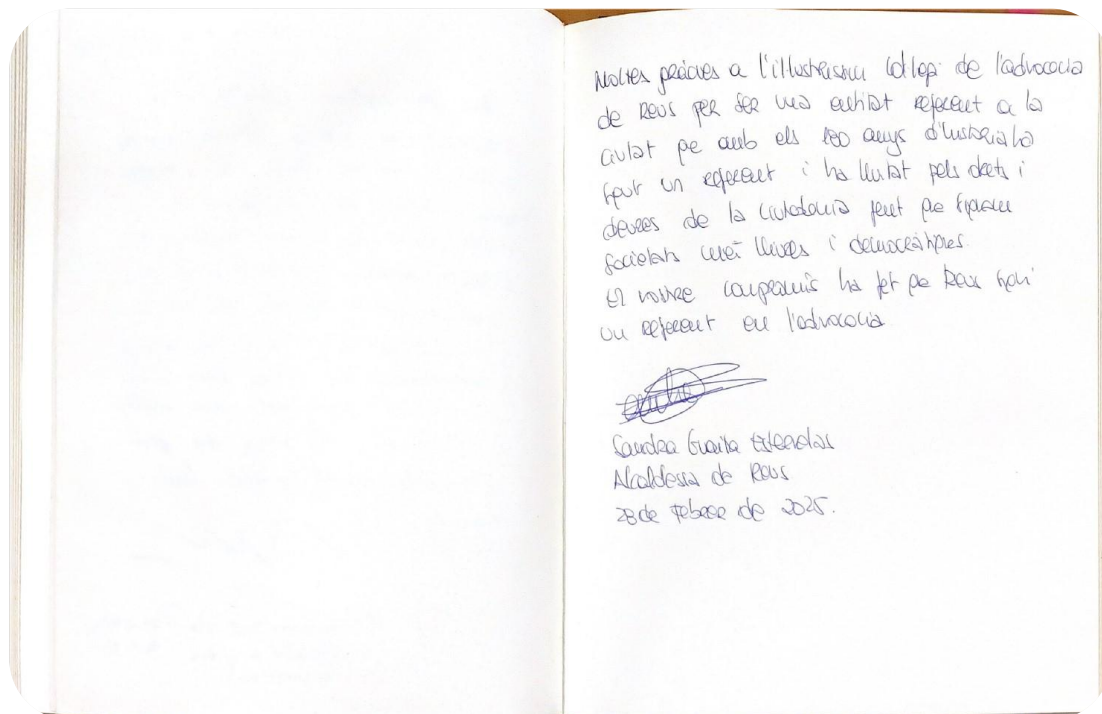 Moltes gràcies a l'il·lustríssim Col·legi de l'advocacia
de Reus per ser una entitat referent a la
ciutat que amb els 180 anys d'història ha
sigut un referent i ha lluitat pels drets i
deures de la ciutadania fent que siguem
societats més lliures i democràtiques.
El vostre compromís ha fet que Reus sigui
un referent en l'advocacia
Sandra Guaita Esteruelas
Alcaldessa de Reus
28 de Febrer de 2025.